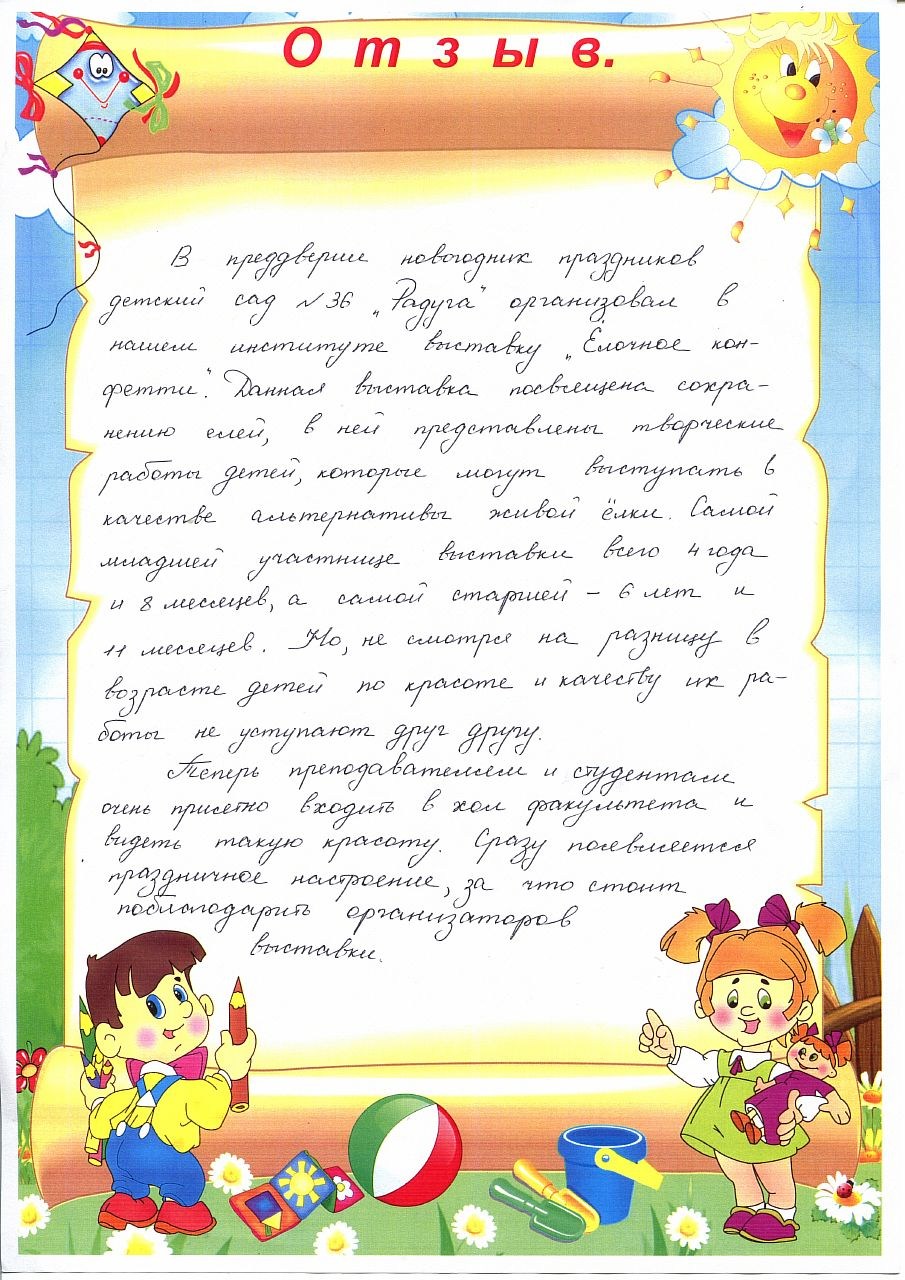 Отзыв.
В преддверие новогодних праздников
детский сад №36 „Радуга" организовал в
нашем институте выставку „Ёлочное кон-
фетти". Данная выставка посвящена сохра-
нению елей, в ней представлены творческие
работы детей, которые могут выступать в
качестве альтернативы живой ёлки. Самой
младшей участнице выставки всего 4 года
и 8 месяцев, а самой старшей - 6 лет и
11 месяцев. Но, не смотря на разницу в
возрасте детей по красоте и качеству их ра-
боты не уступают друг другу.
Теперь преподавателям и студентам
очень приятно входить в холл факультета и
видеть такую красоту. Сразу появляется
праздничное настроение, за что стоит
поблагодарить организаторов
выставки.